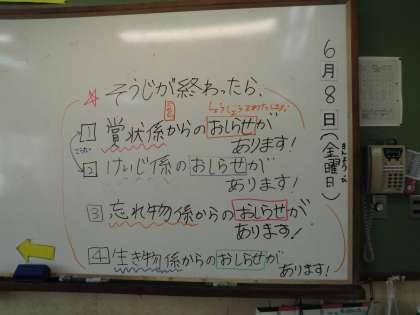 6月8日(金曜日)
きんようび
そうじが終わったら、
1 賞状係からのおしらせが
あります!
2 けいじ係のおしらせが
あります!
3 忘れ物係からのおしらせが
あります!
4 生き物係からのおしらせが
あります!